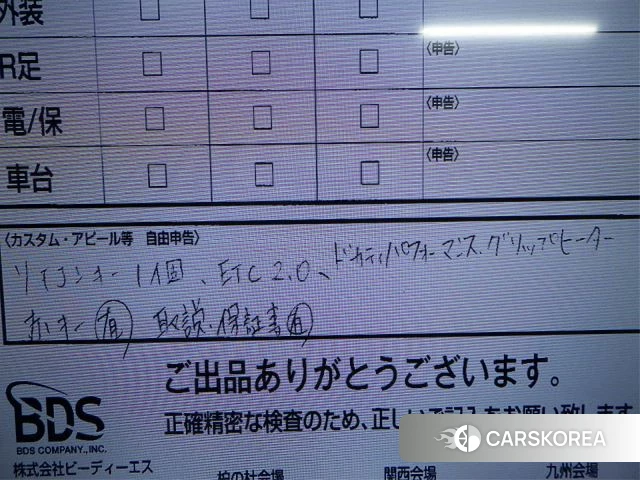 外装 □ □ □
〈申告〉
R足 □ □ □
〈申告〉
電/保 □ □ □
〈申告〉
車台 □ □ □
〈カスタム・アピール等 自由申告〉
リモコンキー1個、ETC2.0、ドカティパフォーマンス.グリップヒーター
赤キー(有) 取説.保証書(有)
ご出品ありがとうございます。
正確精密な検査のため、正しいご記入をお願い致します
BDS
BDS COMPANY., INC.
株式会社ビーディーエス
柏の杜会場
関西会場
九州会場
CARSKOREA